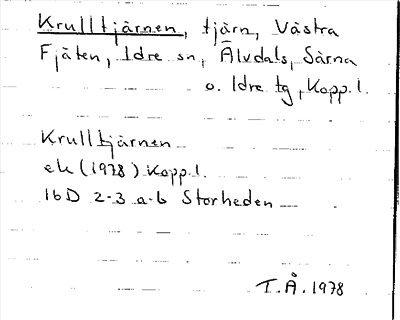 Krulltjärnen, tjärn, Västra
Fjäten, Idre sn, Älvdals, Särna
o. Idre tg, Kopp. l.
Krulltjärnen
ek (1978) Kopp. l.
16D 2-3 a-b Storheden
T.Å. 1978